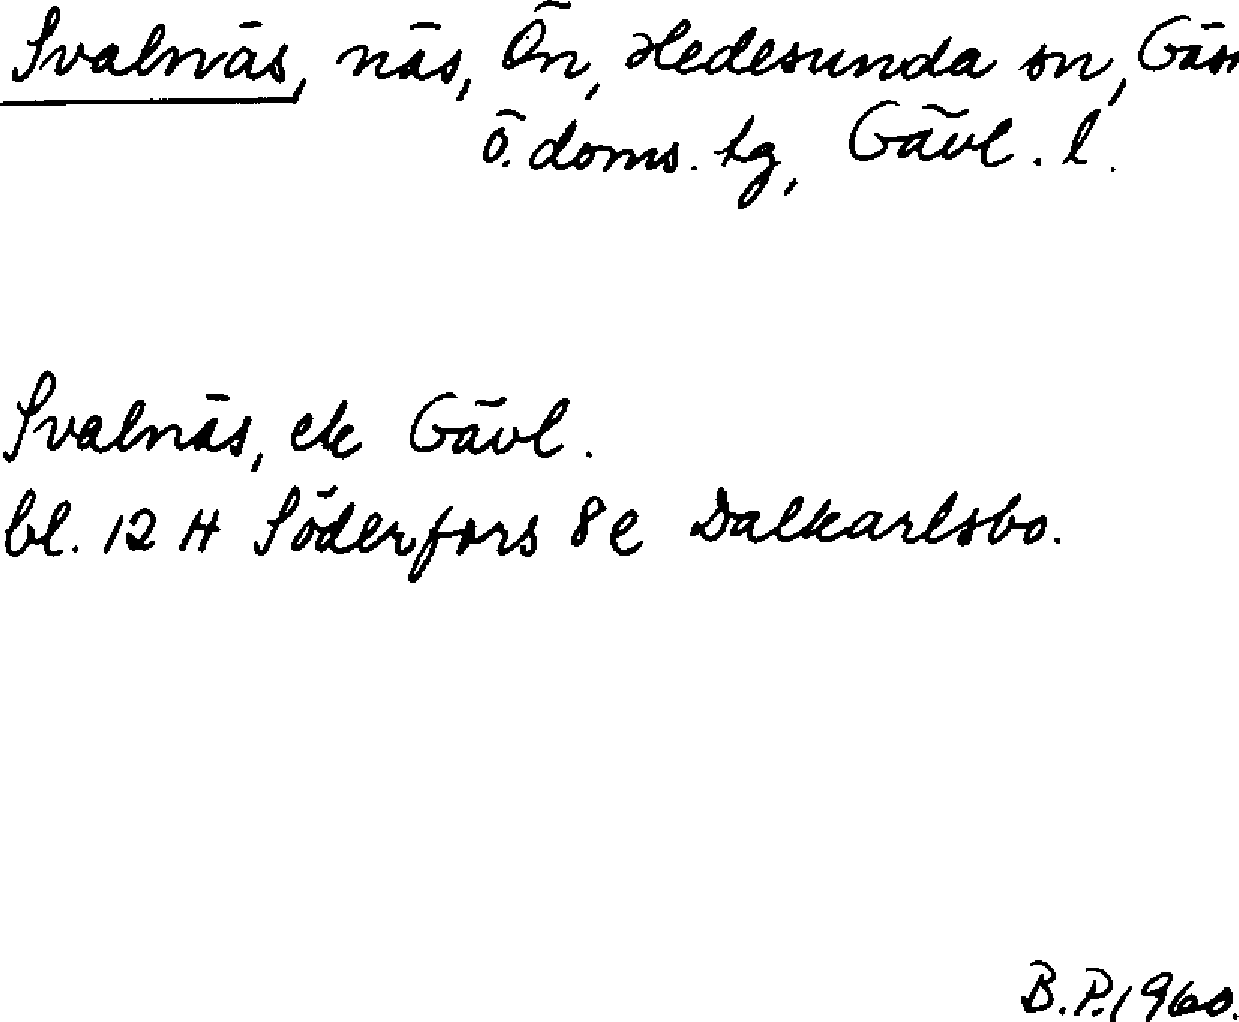 Svalnäs, näs, Ön, Hedesunda sn, Gäs
ö. doms. tg, Gävl. l.
Svalnäs, ek Gävl.
bl. 12 H Söderfors 8 e Dalkarlsbo.
B.P. 1960.